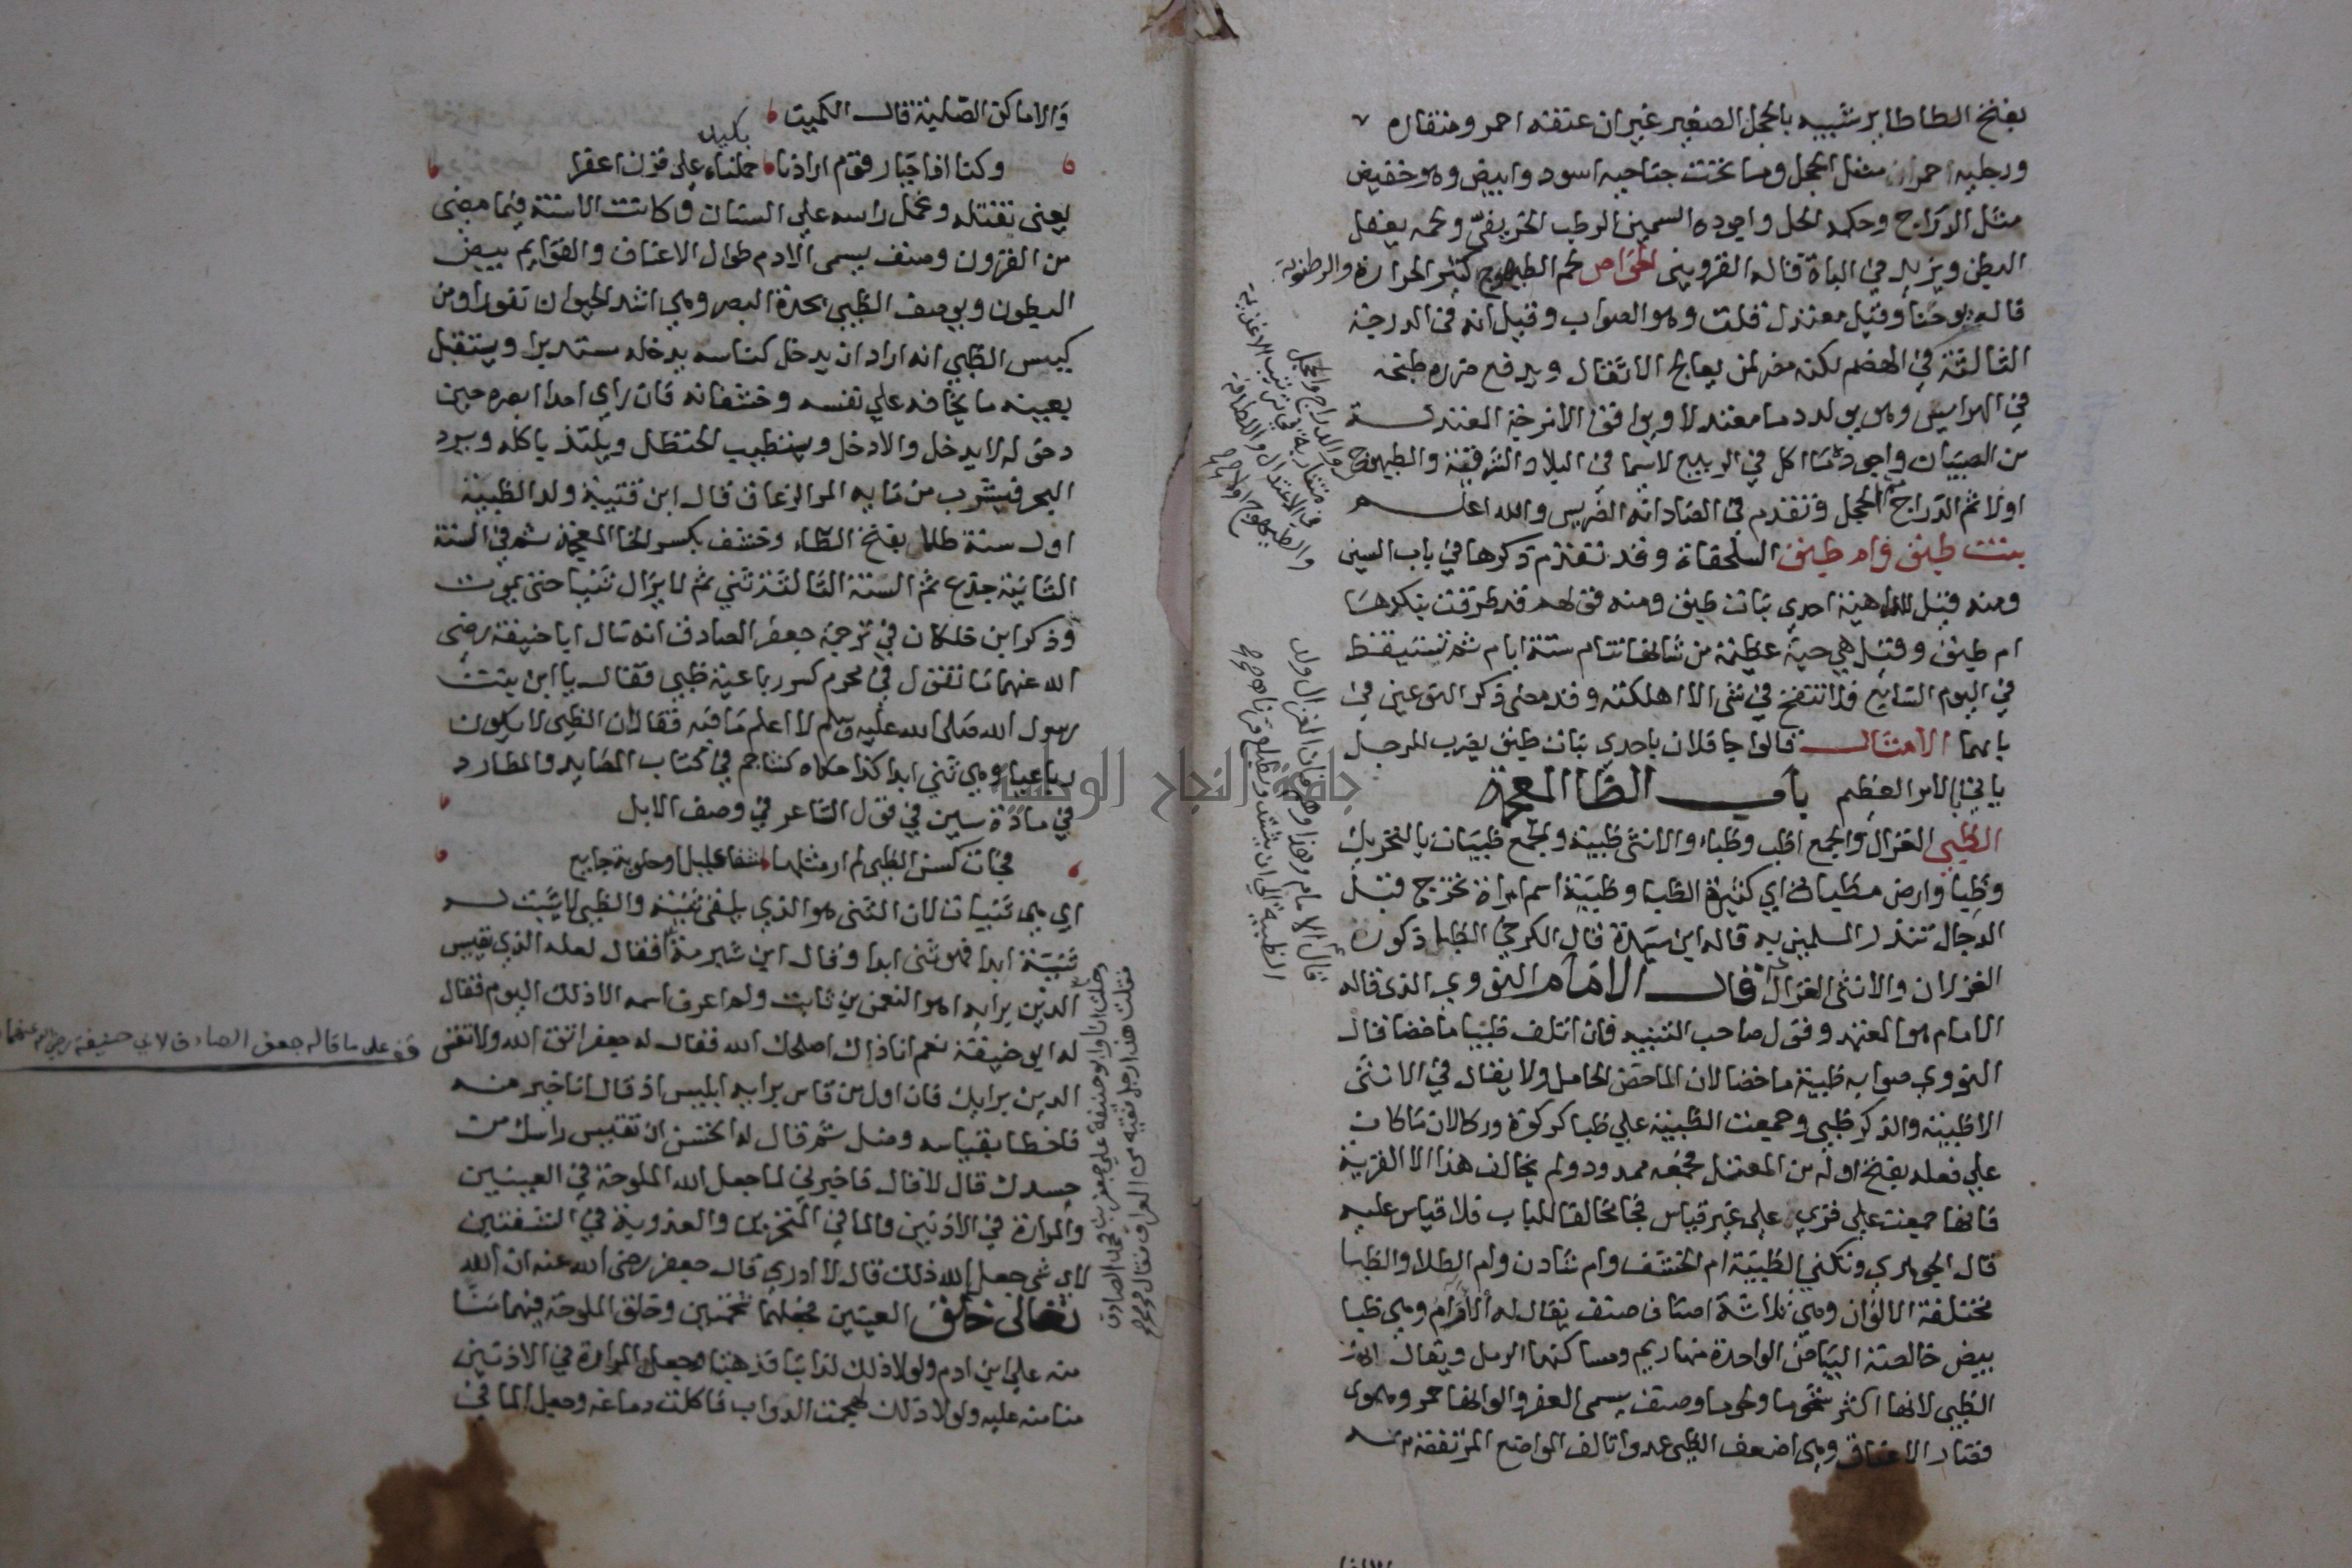 بفتح الطا طاير شبيه بالحجل الصغير غيران عنقه احمر ومنقاره
ورجليه احمران مثل الحجل وما تحت جناحيه اسود وابيض وهو خفيف
مثل الدراج وحكمه الحل واجوده السمين الرطب الخريفي ولحمه يعقل
البطن ويزيد في الباة قاله القزويني الخواص لحم الطيهوج كثير الحرارة والرطوبة
قاله يوحنا وقيل معتدل قلت وهو الصواب وقيل انه في الدرجة
الثالثة في الهضم لكنه مضر لمن يعالج الاثقال ويدفع ضرره طبخه
في الهرايس وهو يولد دما معتدلا ويوافق الامزجة المعتدلة
من الصبيان واجود ما اكل في الربيع لاسيما في البلاد الشرقية والطيهوج
اولا ثم الدراج ثم الحجل وتقدم في الضاد انه الضريس والله اعلم
بنت طبق وام طبق السلحفاة وقد تقدم ذكرها في باب السين
ومنه قيل للداهية احدى بنات طبق ومنه قولهم قد طرقت ببكرها
ام طبق وقيل هي حية عظيمة من شانها تنام ستة ايام ثم تستيقظ
في اليوم السابع فلا تنفخ في شي الا اهلكته وقد مضى ذكر النوعين في
بابهما الامثال قالوا جا فلان باحدي بنات طبق يضرب للرجل
ياتي بالامر العظيم باب الظا المعجمة
الظبي الغزال والجمع اظب وظباء والانثى ظبية والجمع ظبيات بالتحريك
وظبا وارض مظباة اي كثيرة الظبا وظبية اسم امراة تخرج قبل
الدجال تنذر المسلمين به قاله ابن سيدة قال الكرخي الظبا ذكورة
الغزلان والانثى الغزال قال الامام النووي الذي قاله
الامام هو المعتمد وقول صاحب التنبيه فان اتلف ظبيا ماخضا قال
النووي صوابه ظبية ماخضا لان الماخض الحامل ولا يقال في الانثى
الا ظبية والذكر ظبي وجمعت الظبية علي ظبا كركوة وركا لان ما كان
علي فعله بفتح اوله من المعتل فجمعه ممدود ولم يخالف هذا الا القرية
فانها جمعت علي قري علي غير قياس فجا مخالفا للباب فلا قياس عليه
قال الجوهري وتكني الظبية ام الخشف وام شادن وام الطلا والظبا
مختلفة الالوان وهي ثلاثة اصناف صنف يقال له الارام وهي ظبا
بيض خالصة البياض الواحدة منها ريم ومساكنها الرمل ويقال انها
الظبي لانها اكثر شحوما ولحوما وصنف يسمى العفر والوانها حمر وهوي
قصار الاعناق وهي اضعف الظبي عدوا تالف المواضع المرتفعة منه
والاماكن الصلبة قال الكميت
وكنا اذا جبار قوم ارادنا بكيد حملناه علي قرن اعفرا
يعني نقتله ونحمل راسه علي السنان وكانت الاسنة فيما مضى
من القرون وصنف يسمى الادم طوال الاعناق والقوايم بيض
البطون ويوصف الظبي بحدة البصر وهي اشد الحيوان نفورا ومن
كيس الظبي انه اراد ان يدخل كناسه يدخله مستدبرا ويستقبل
بعينيه ما يخافه علي نفسه وخشفانه فان راي احدا ابصره حين
دخوله لا يدخل والا دخل ويستطيب الحنظل ويلتذ باكله ويرد
البحر فيشرب من مايه المر الزعاق قال ابن قتيبة ولد الظبية
اول سنة طلا بفتح الطاء وخشف بكسر الخا المعجمة ثم في السنة
الثانية جذع ثم السنة الثالثة ثني ثم لا يزال ثنيا حتى يموت
وذكر ابن خلكان في ترجمة جعفر الصادق انه سال ابا حنيفة رضى
الله عنهما ما تقول في محرم كسر رباعية ظبي فقال يا ابن بنت
رسول الله صلى الله عليه وسلم لا اعلم ما فيه فقال ان الظبي لا يكون
رباعيا وهي ثني ابدا كذا حكاه كشاجم في كتاب المصايد والمطارد
في مادة سين في قول الشاعر في وصف الابل
فجات كسن الظبي لم ار مثلها شفا عليل او حلوبة جايع
اي هي ثنيات لان الثني هو الذي يلقى ثنيته والظبي لا يثبت له
ثنية ابدا فهو ثنى ابدا وقال ابن شبرمة فقال لعله الذي يقيس
الدين برايه اهو النعمن بن ثابت ولم اعرف اسمه الا ذلك اليوم فقال
له ابو حنيفة نعم انا ذاك اصلحك الله فقال له جعفر اتق الله ولا تقس
الدين برايك فان اول من قاس برايه ابليس اذ قال انا خير منه
فاخطا بقياسه وضل ثم قال له اتحسن ان تقيس راسك من
جسدك قال لا قال فاخبرني لما جعل الله الملوحة في العينين
والمرارة في الاذنين والما في المنخرين والعذوبة في الشفتين
لاي شي جعل الله ذلك قال لا ادري قال جعفر رضى الله عنه ان الله
تعالى خلق العينين فجعلهما شحمتين وخلق الملوحة فيهما منا
منه علي ابن ادم ولولا ذلك لذابتا فذهبتا وجعل المرارة في الاذنين
منا منه عليه ولولا ذلك لهجمت الدواب فاكلت دماغه وجعل الما في
قف على ما قاله جعفر الصادق لابي حنيفة رضي الله عنهما
دخلت انا وابو حنيفة علي جعفر بن محمد الصادق
فقلت هذا رجل فقيه من العراق فقال
قال الامام وهذا وهم فان الغزال ولد
الظبية الي ان يشتد ويطلع قرناه
جامعة النجاح الوطنية